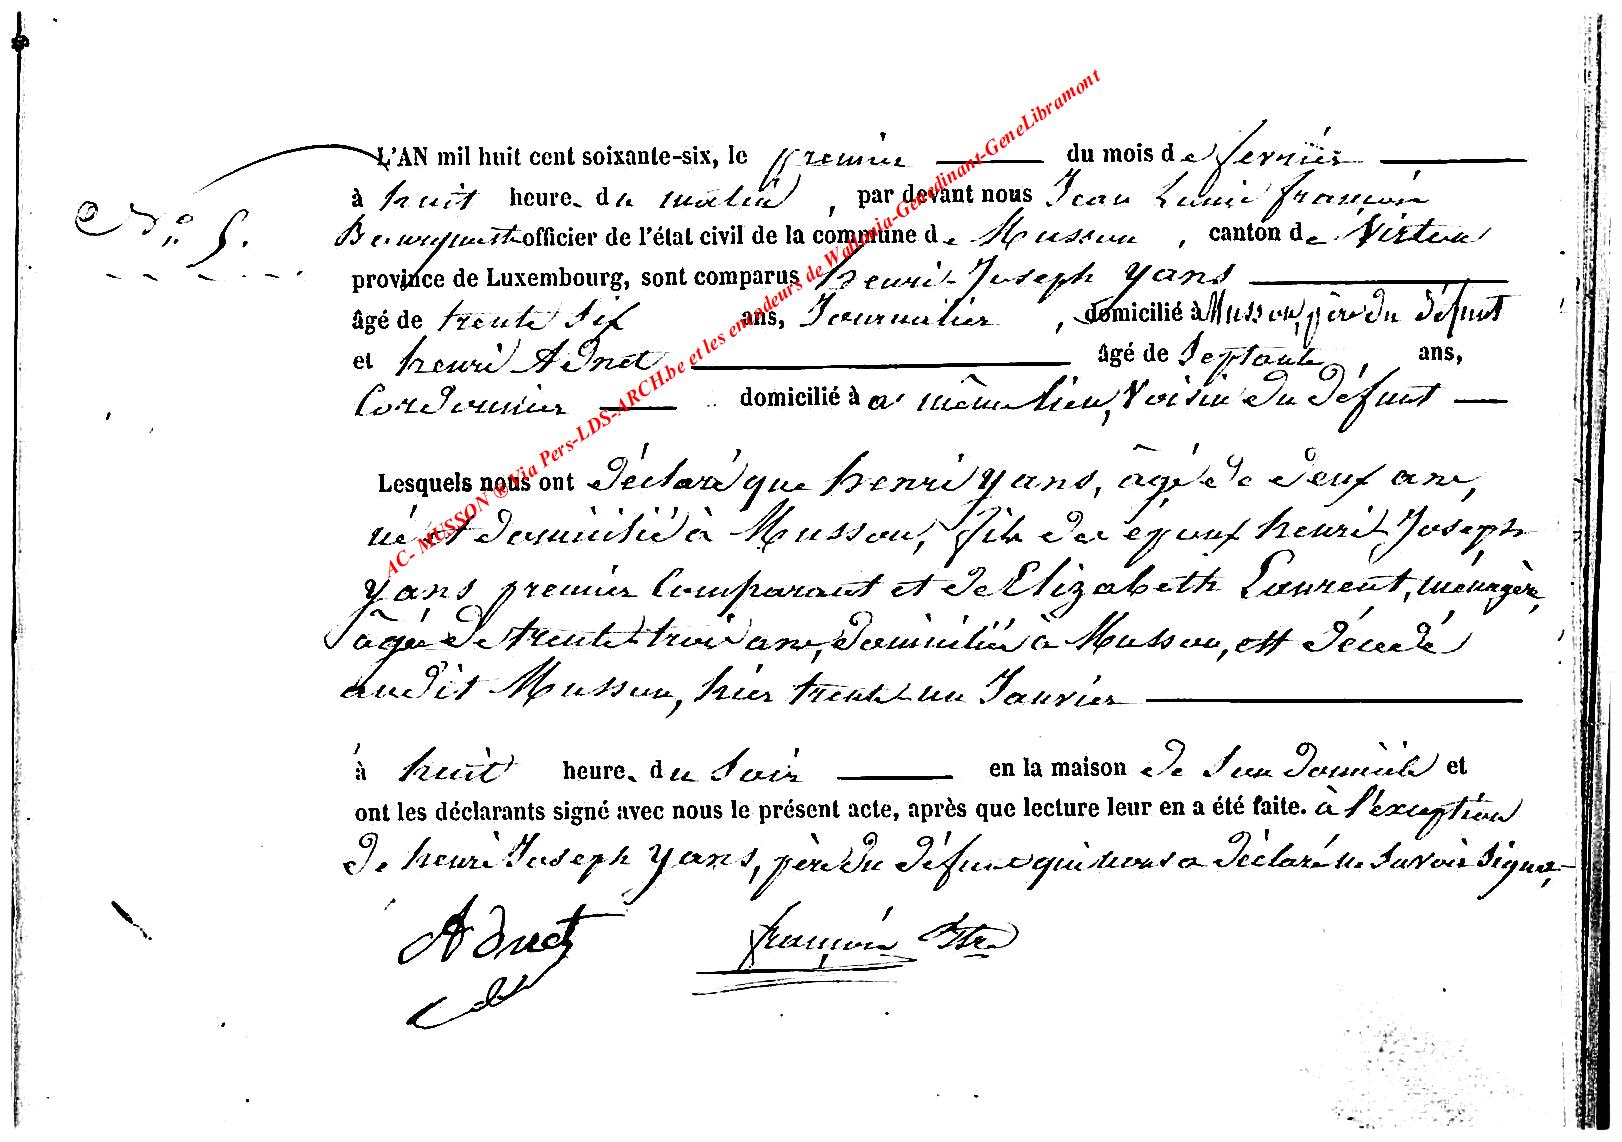 L'AN mil huit cent soixante-six, le premier du mois de fevrier
à huit heure. du matin, par devant nous Jean Louis françois
officier de l'état civil de la commune de Musson, canton de Virton
N.o 5.
province de Luxembourg, sont comparus henri-Joseph yans
âgé de trente six ans, Journalier, domicilié à Musson, père du défunt
et henri Adnet âgé de Septante ans,
Cordonnier domicilié à a même lieu, Voisin du défunt
Lesquels nous ont déclaré que henri yans, âgé de deux ans,
né et domicilié à Musson, fils des époux henri-Joseph
yans premier Comparant et de Elizabeth Laurent, ménagère,
âgée de trente-trois ans, domiciliée à Musson, est décédé
audit Musson, hier trente-un Janvier
à huit heure. du Soir en la maison de Son domicile et
ont les déclarants signé avec nous le présent acte, après que lecture leur en a été faite. à l'exception
de henri Joseph yans, père du défunt qui nous a déclaré ne Savoir Signer.
Adnet françois
AC- MUSSON ® Via Pers-LDS-ARCH.be et les encodeurs de Wallonia-Genedinant-GeneLibramont